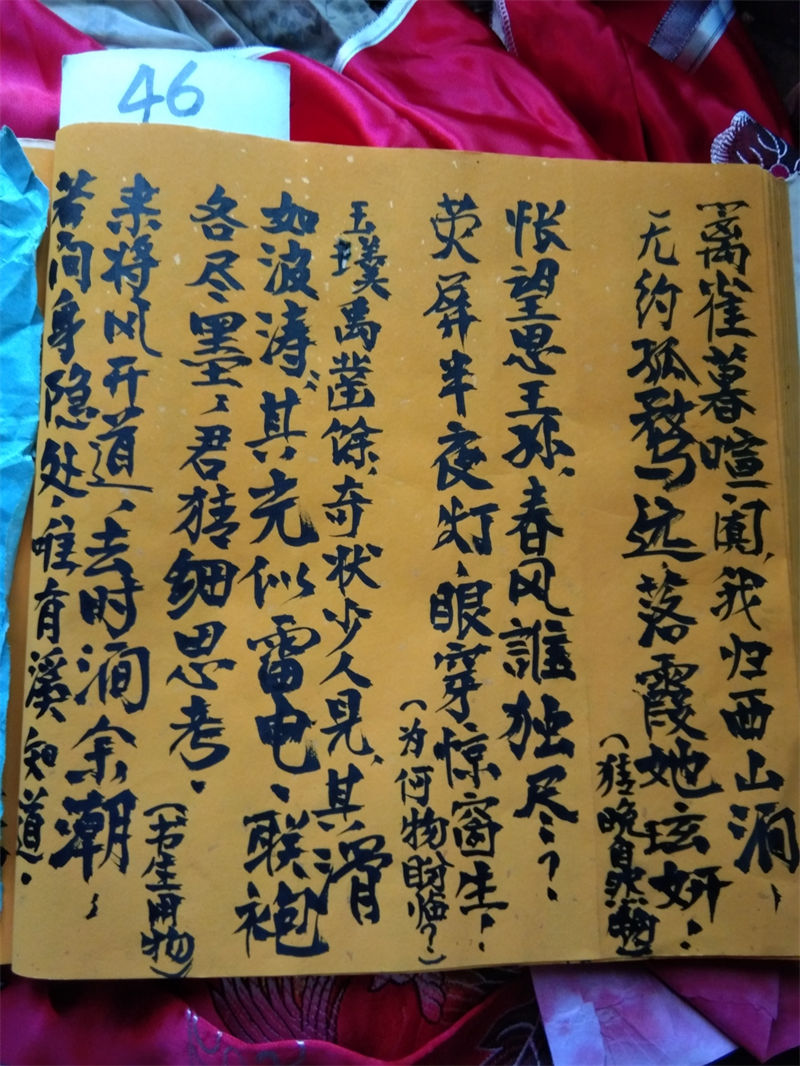 46
离雀暮喧阗,我归西山涧,
无约孤鹜远、落霞她玹妍.
(猜晚自然物)
怅望思王孙,春风誰独尽?
荧屏半夜灯、眼穿惊窗生.
(为何物盼临?)
玉璞禹凿馀,奇状少人見、其滑
如波涛、其光似雷电、联袍
各尽墨、君猜细思考.
(书生用物)
来将风开道、去时涧余潮、
若问身隐处、唯有溪知道.